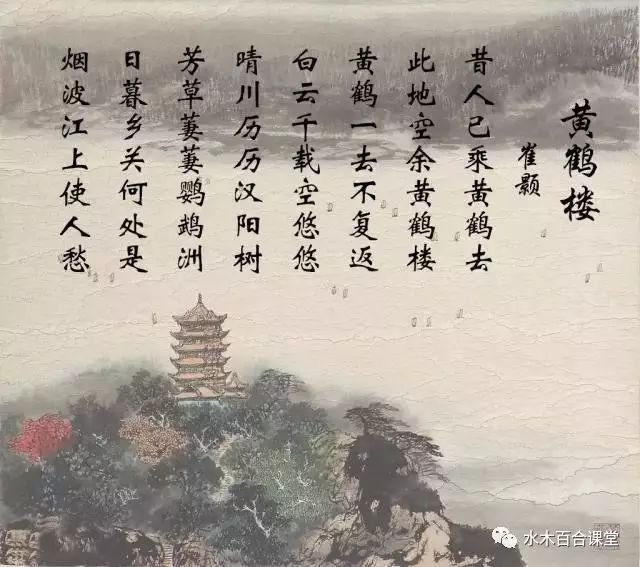 黄鹤楼
崔颢
昔人已乘黄鹤去
此地空余黄鹤楼
黄鹤一去不复返
白云千载空悠悠
晴川历历汉阳树
芳草萋萋鹦鹉洲
日暮乡关何处是
烟波江上使人愁
水木百合课堂